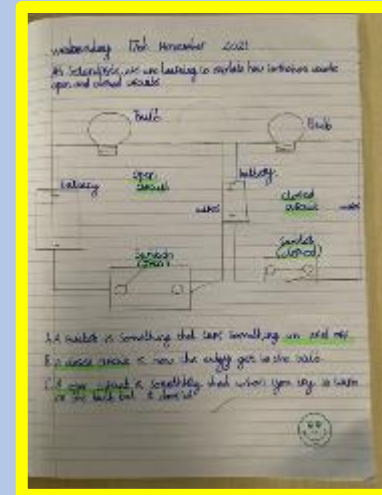 Wednesday 17th November 2021
As Scientists, we are learning to explain how switches
open and closed circuits
Bulb
Bulb
battery
open
circuit
battery
closed
circuit
wires
wires
Switch
(open)
Switch
(closed)
A. A switch is something that turns something on and off.
B. A closed circuit is how the energy gets to the bulb.
C. A open circuit is something that when you try to turn
on the bulb but it